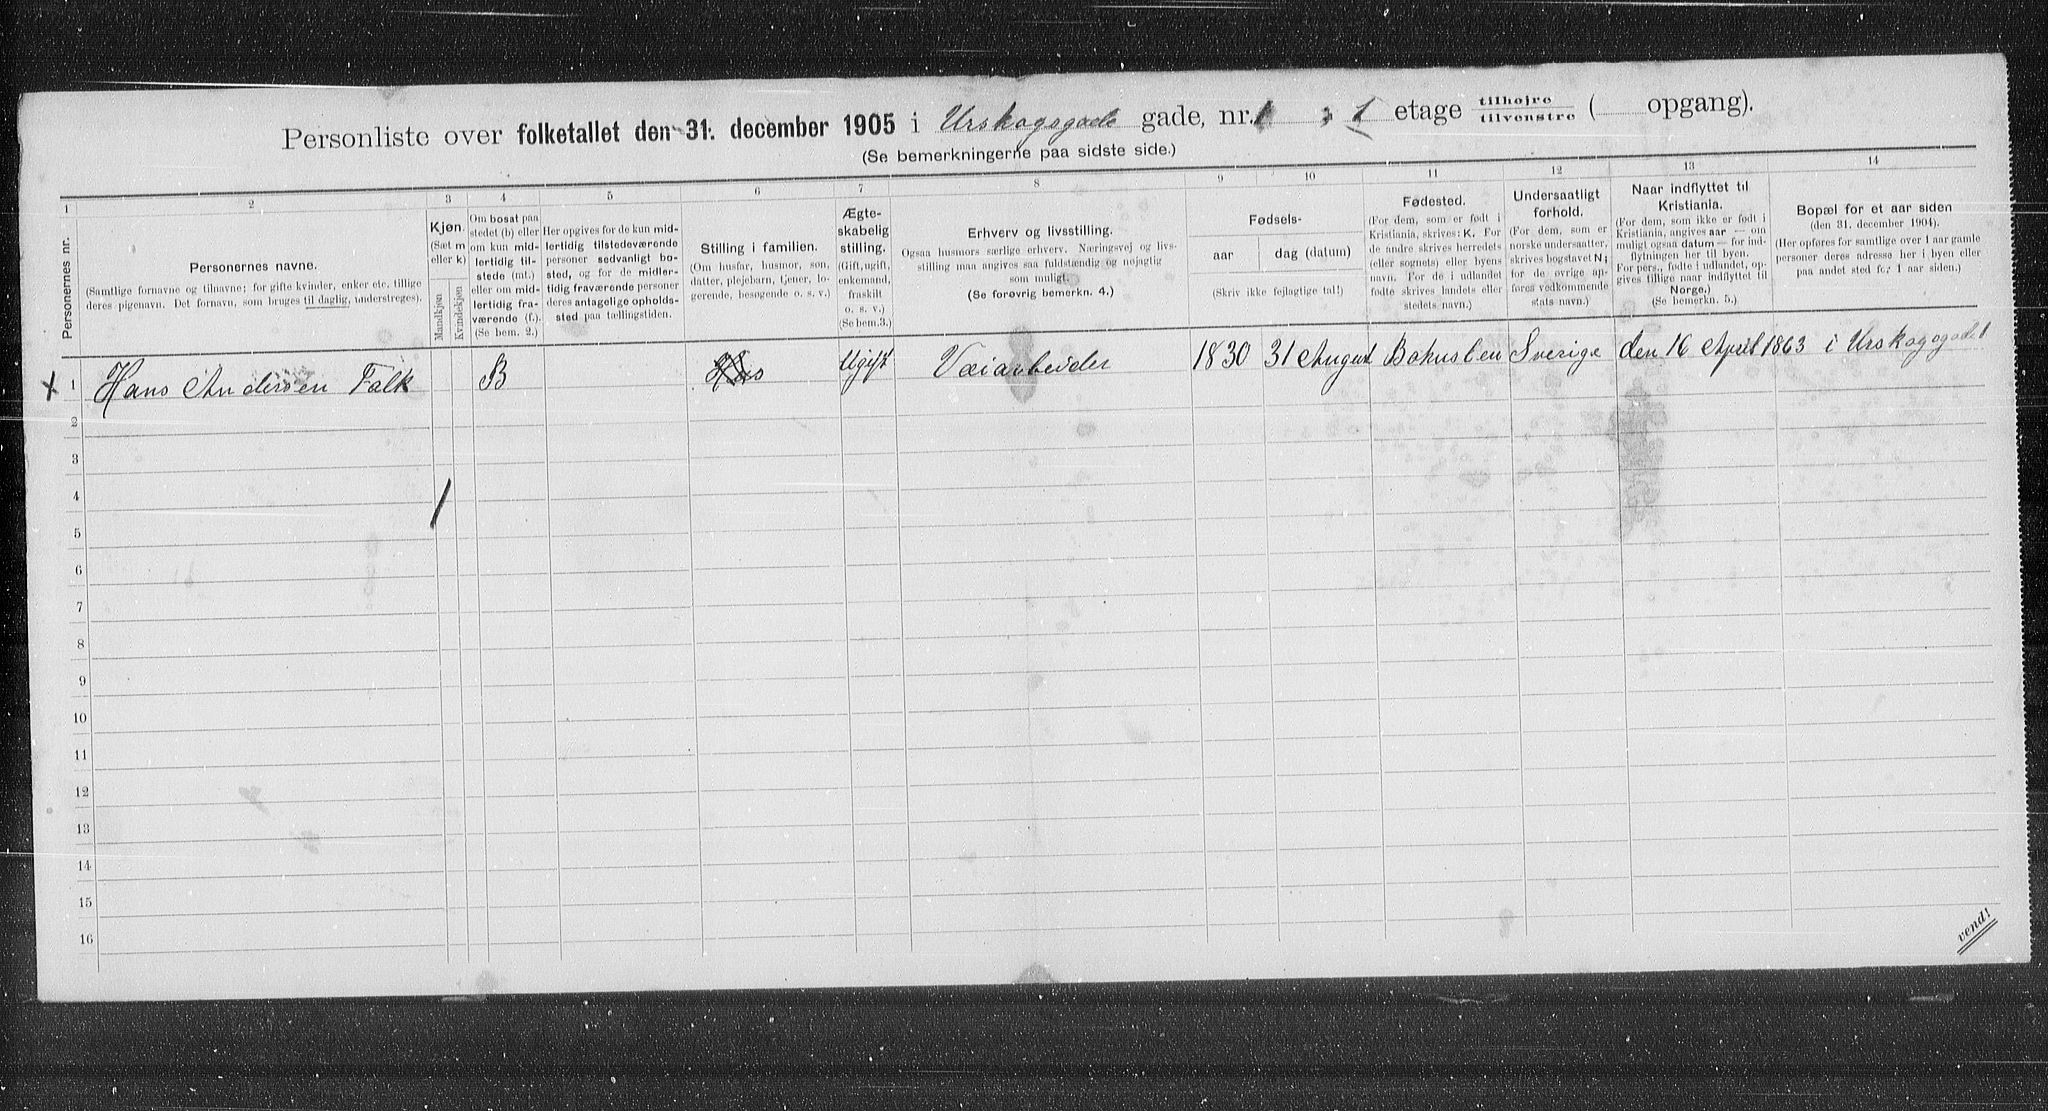 Personliste over folketallet den 31. december 1905 i Urskogsgade gade, nr. 1 1 etage tilhøjre tilvenstre ( opgang).
(Se bemerkningerne paa sidste side.)
1 2 3 4 5 6 7 8 9 10 11 12 13 14
Personernes nr.
Personernes navne.
(Samtlige fornavne og tilnavne; for gifte kvinder, enker etc. tillige
deres pigenavn. Det fornavn, som bruges til daglig, understreges).
Kjøn.
(Sæt m
eller k)
Mandkjøn
Kvindekjøn
Om bosat paa
stedet (b) eller
om kun mid-
lertidig til-
stede (mt.)
eller om mid-
lertidig fra-
værende (f.).
(Se bem. 2.)
Her opgives for de kun mid-
lertidig tilstedeværende
personer sedvanligt bo-
sted, og for de midler-
tidig fraværende personer
deres antagelige opholds-
sted paa tællingstiden.
Stilling i familien.
(Om husfar, husmor, søn,
datter, plejebarn, tjener, lo-
gerende, besøgende o. s. v.)
Ægte-
skabelig
stilling.
(Gift, ugift,
enkemand,
fraskilt
o. s. v.)
(Se bem.3.)
Erhverv og livsstilling.
Ogsaa husmors særlige erhverv. Næringsvej og livs-
stilling maa angives saa fuldstændig og nøjagtig
som muligt.
(Se forøvrig bemerkn. 4.)
Fødsels-
aar dag (datum)
(Skriv ikke fejlagtige tal!)
Fødested.
(For dem, som er født i
Kristiania, skrives: K. For
de andre skrives herredets
(eller sognets) eller byens
navn. For de i udlandet
fødte skrives landets eller
stedets navn.)
Undersaatligt
forhold.
(For dem, som er
norske undersaatter,
skrives bogstavet N;
for de øvrige an-
føres vedkommende
stats navn.)
Naar indflyttet til
Kristiania.
(For dem, som ikke er født i
Kristiania, angives aar — om
muligt ogsaa datum — for ind-
flytningen her til byen.
For pers., fødte i udlandet, op-
gives tillige naar indflyttet til
Norge.)
(Se bemerkn. 5.)
Bopæl for et aar siden
(den 31. december 1904).
(Her opføres for samtlige over 1 aar gamle
personer deres adresse her i byen eller
paa andet sted for 1 aar siden.)
x 1 Hans Andersen Falk B Ugift Veiarbeider 1830 31 August Bohuslen Sverige den 16 April 1863 i Urskogsgade 1
2
3
4
5
6
7
8
9
10
11
12
13
14
15
16
vend!